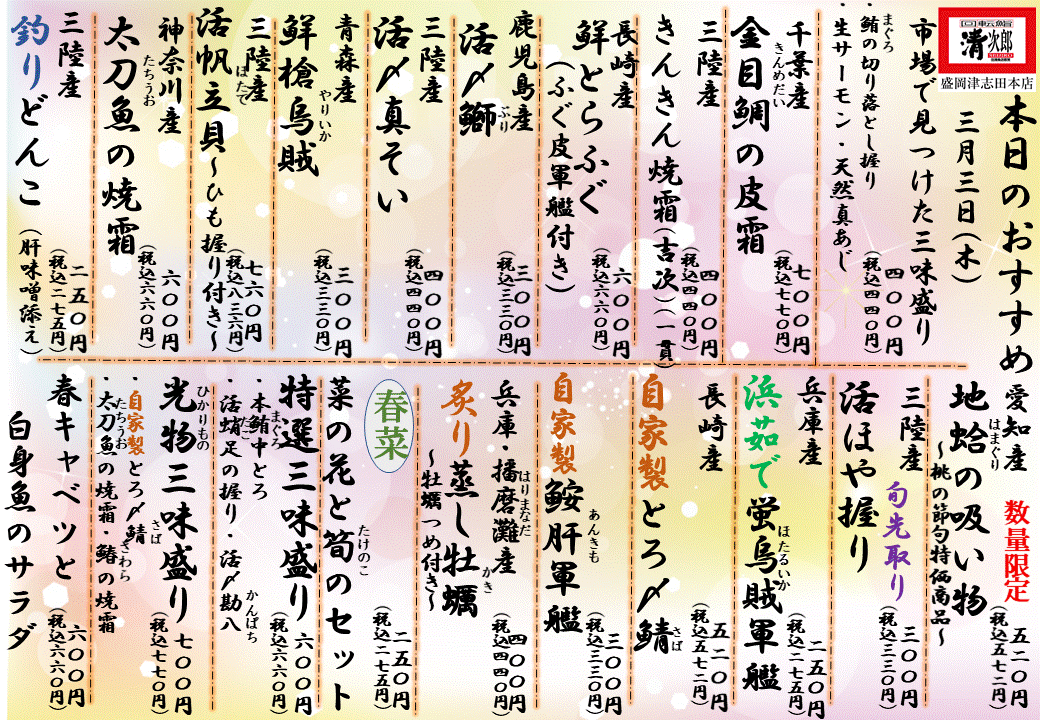 回転鮨
清次郎
盛岡津志田本店
本日のおすすめ
三月三日(木)
市場で見つけた三味盛り
・鮪の切り落とし握り
まぐろ
・生サーモン・天然真あじ
四〇〇円
(税込四四〇円)
千葉産
金目鯛の皮霜
きんめだい
七〇〇円
(税込七七〇円)
三陸産
きんきん焼霜(吉次)(一貫)
四〇〇円
(税込四四〇円)
長崎産
鮮とらふぐ
(ふぐ皮軍艦付き)
六〇〇円
(税込六六〇円)
鹿児島産
活〆鰤
ぶり
三〇〇円
(税込三三〇円)
三陸産
活〆真そい
四〇〇円
(税込四四〇円)
青森産
鮮槍烏賊
やりいか
三〇〇円
(税込三三〇円)
三陸産
活帆立貝~ひも握り付き~
ほたて
七六〇円
(税込八三六円)
神奈川産
太刀魚の焼霜
たちうお
六〇〇円
(税込六六〇円)
三陸産
釣りどんこ
(肝味噌添え)
二五〇円
(税込二七五円)
愛知産
数量限定
地蛤の吸い物
はまぐり
~桃の節句特価商品~
五二〇円
(税込五七二円)
三陸産
旬先取り
活ほや握り
三〇〇円
(税込三三〇円)
兵庫産
浜茹で蛍烏賊軍艦
ほたるいか
二五〇円
(税込二七五円)
長崎産
自家製とろ〆鯖
さば
五二〇円
(税込五七二円)
自家製鮟肝軍艦
あんきも
三〇〇円
(税込三三〇円)
兵庫・播磨灘産
はりまなだ
炙り蒸し牡蠣
かき
~牡蠣つめ付き~
四〇〇円
(税込四四〇円)
春菜
菜の花と筍のセット
たけのこ
二五〇円
(税込二七五円)
特選三味盛り
・本鮪中とろ
まぐろ
・活蛸足の握り・活〆勘八
たこ
かんぱち
六〇〇円
(税込六六〇円)
光物三味盛り
ひかりもの
・自家製とろ〆鯖
さば
・太刀魚の焼霜・鰆の焼霜
たちうお
さわら
七〇〇円
(税込七七〇円)
春キャベツと
白身魚のサラダ
六〇〇円
(税込六六〇円)